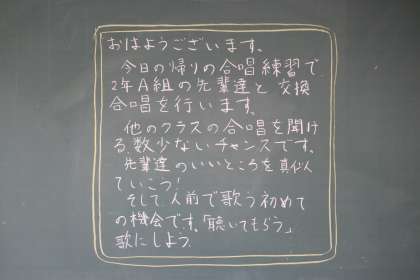 おはようございます。
今日の帰りの合唱練習で
2年A組の先輩達と交換
合唱を行います。
他のクラスの合唱を聞け
る数少ないチャンスです。
先輩達のいいところを真似
ていこう!
そして人前で歌う初めて
の機会です。「聴いてもらう」
歌にしよう。